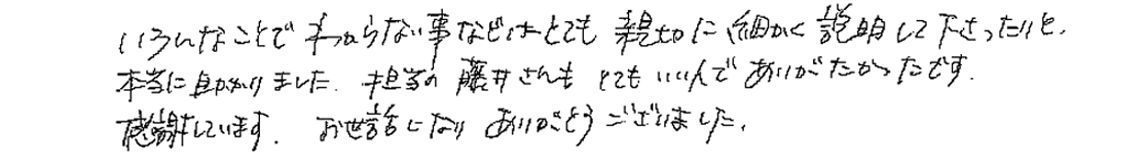 いろんなことでわからない事などはとても親切に細かく説明して下さったりと、
本当に助かりました。担当の藤井さんもとてもいい人でありがたかったです。
感謝しています。お世話になりありがとうございました。